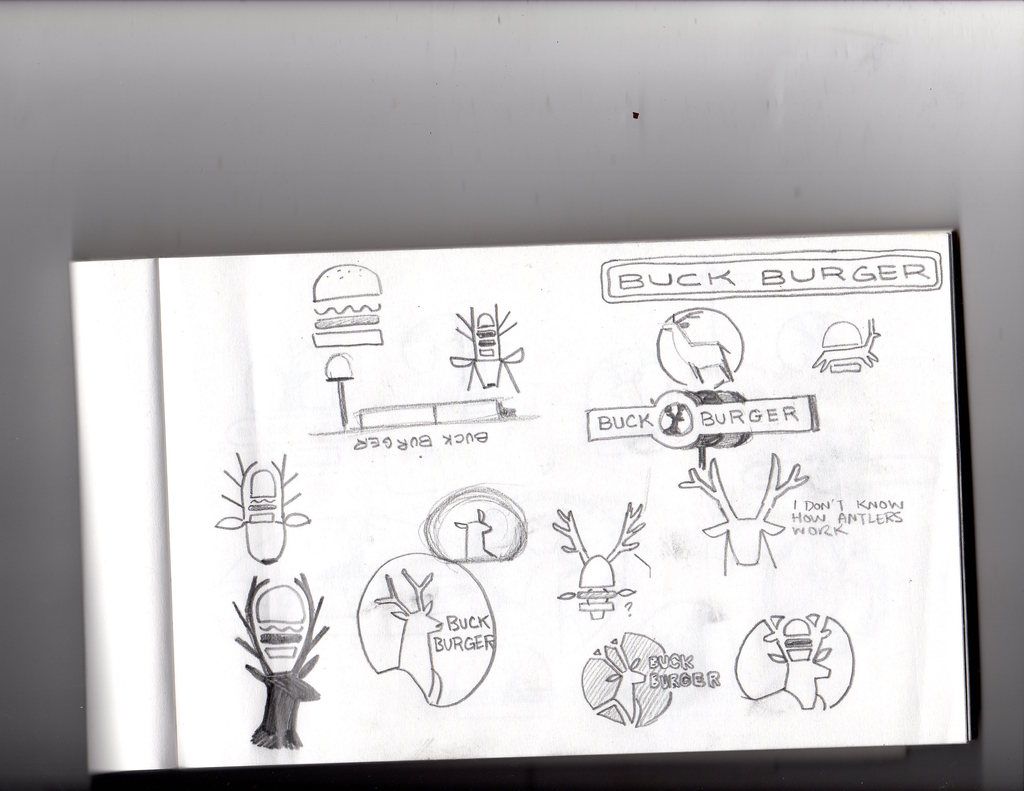 BUCK BURGER
BUCK BURGER
BUCK BURGER
I DON'T KNOW
HOW ANTLERS
WORK
?
BUCK
BURGER
BUCK
BURGER